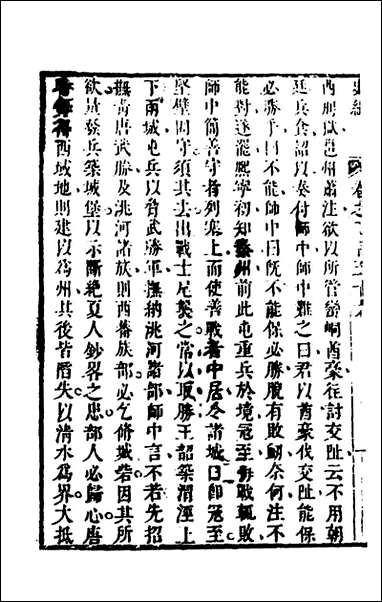 西刑獄邕州蕭注欲以所管谿峒酋豪往討交趾云不用朝
廷兵食詔以奏付師中師中難之曰君以酋豪伐交趾能保
必勝乎曰不能師中曰既不能保必勝脫有敗衂奈何注不
能對遂罷熙寧初知秦州前此屯重兵於境寇至每戰輒敗
師中簡善守者列塞上而使善戰者中居令諸城曰即寇至
堅壁固守須其去出戰士尾襲之常以取勝王韶築渭涇上
下兩城屯兵以脅武勝軍撫納洮河諸部師中言不若先招
撫青唐武勝及洮河諸族則西蕃族部必乞修城砦因其所
欲量發兵築城堡以示斷絕夏人鈔畧之患部人必歸心唐
得西域地則建以為州其後皆陷失以清水為界大抵